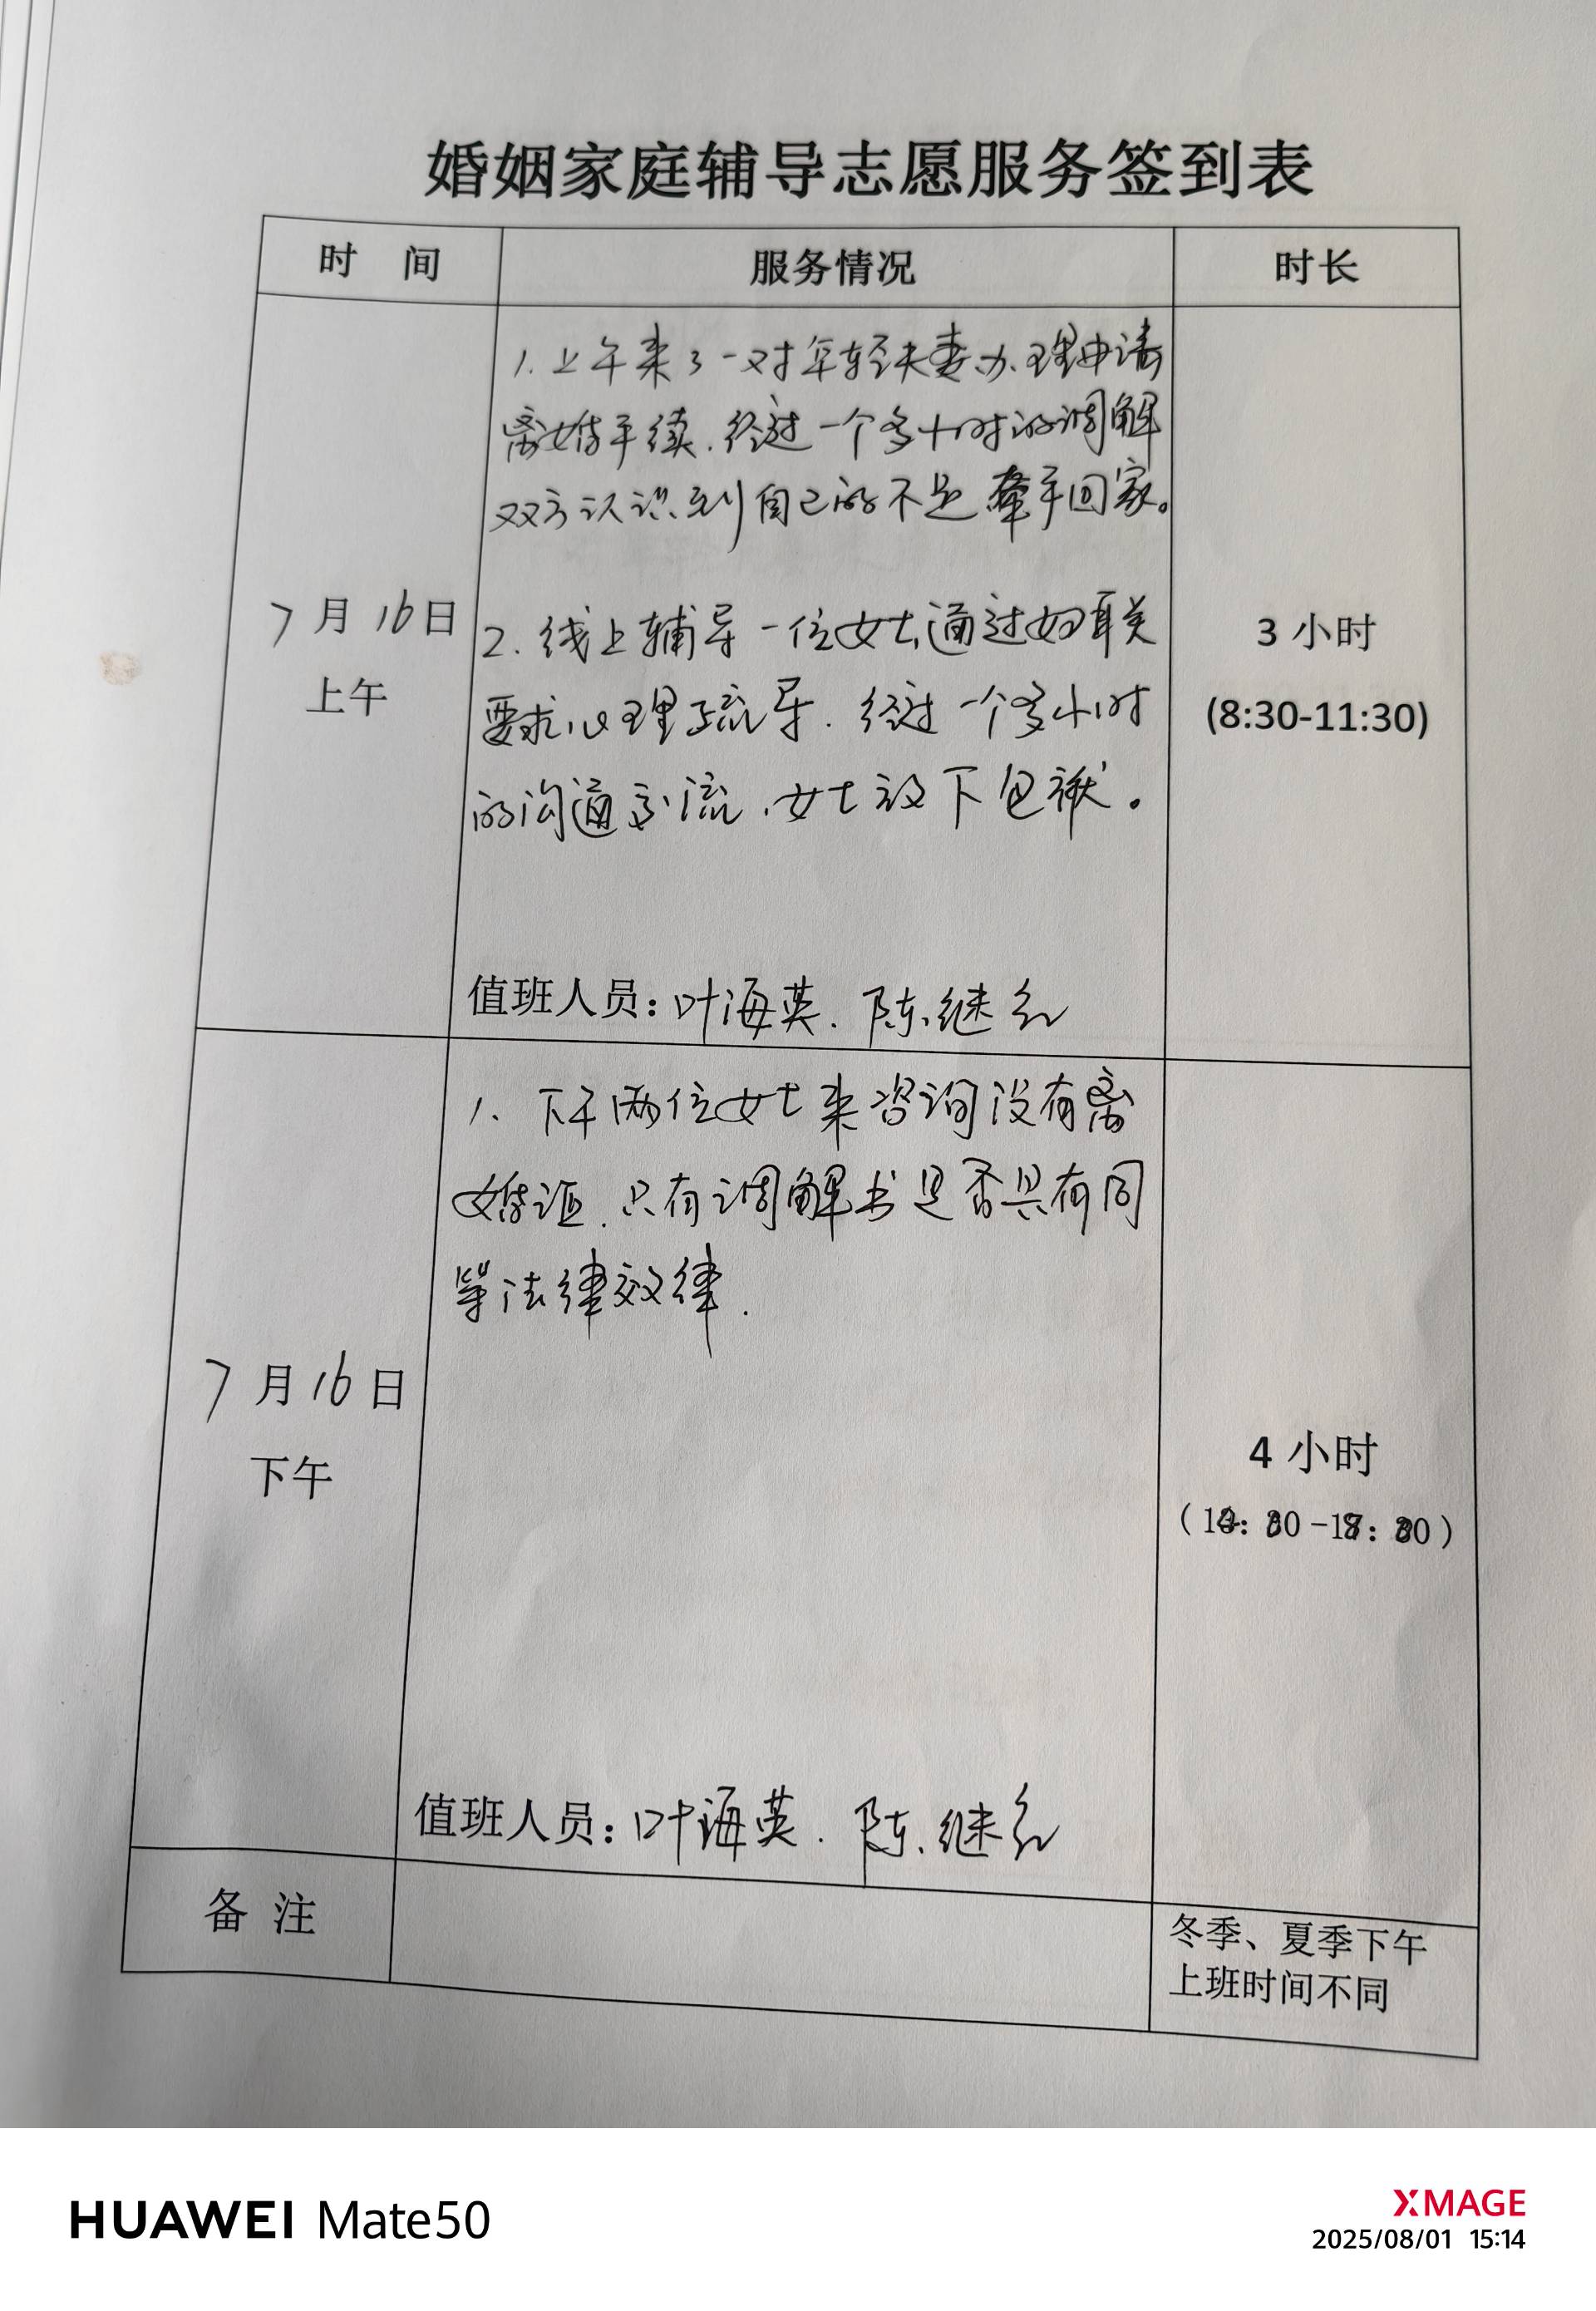 婚姻家庭辅导志愿服务签到表
时 间 服务情况 时长
7月16日
上午
1.上午来了一对年轻夫妻办理申请
离婚手续.经过一个多小时的调解
双方认识到自己的不足牵手回家。
2.线上辅导一位女士通过妇联
要求心理疏导.经过一个多小时
的沟通交流,女士放下包袱。
值班人员:叶海英.陈继红
3 小时
(8:30-11:30)
7月16日
下午
1.下午两位女士来咨询没有离
婚证.只有调解书是否具有同
等法律效律.
值班人员:叶海英.陈继红
4 小时
备 注
冬季、夏季下午
上班时间不同
HUAWEI Mate50
XMAGE
2025/08/01 15:14